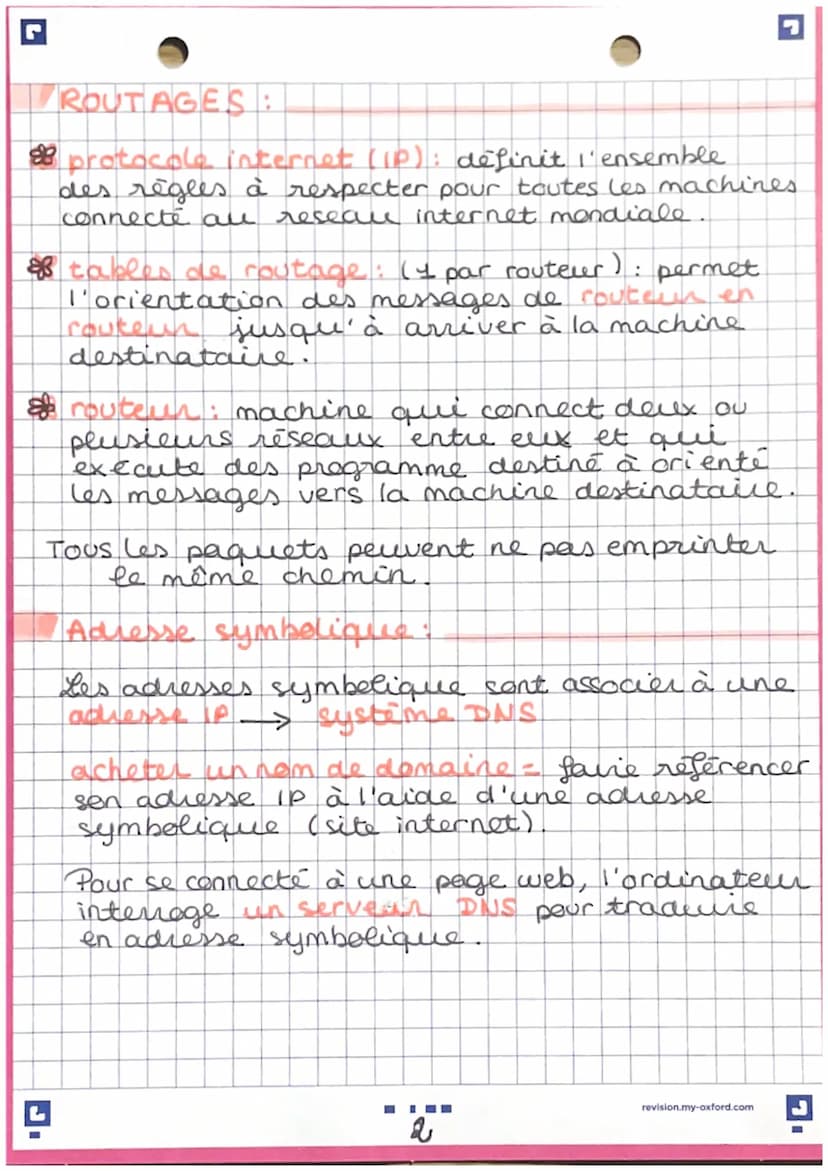 ROUTAGES :
protocole internet (IP) : définit l'ensemble
des règles à respecter pour toutes les machines
connecté au reseau internet mondiale.
tables de routage : (1 par routeur) : permet
l'orientation des messages de routeur en
routeur jusqu'à arriver à la machine
destinataire.
routeur : machine qui connect deux ou
plusieurs réseaux entre eux et qui
exécute des programme destiné à orienté
les messages vers la machine destinataire.
Tous les paquets peuvent ne pas emprinter
le même chemin.
Adresse symbolique :
Les adresses symbolique sont associer à une
adresse IP → système DNS
acheter un nom de domaine = faire référencer
son adresse IP à l'aide d'une adresse
symbolique (site internet).
Pour se connecté à une page web, l'ordinateur
interroge un serveur DNS pour traduire
en adresse symbolique.
revision.my-oxford.com
2